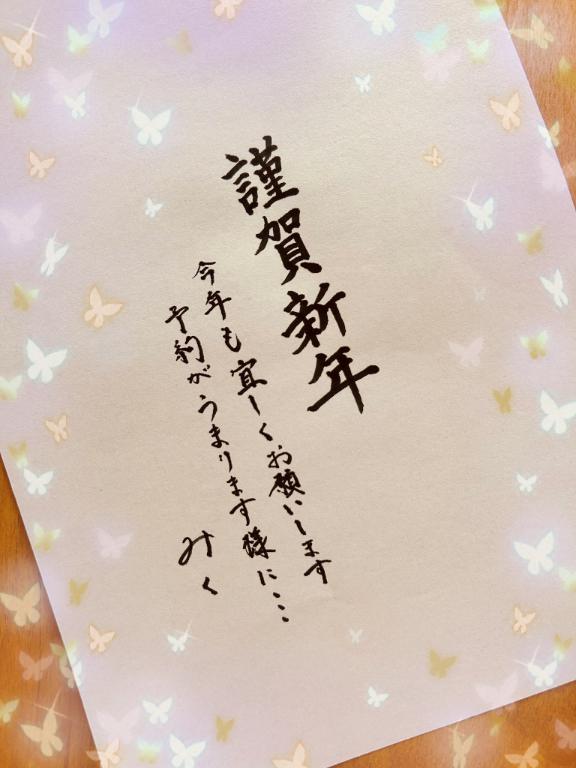 謹賀新年
今年も宜しくお願いします
予約がうまります様に…
みく